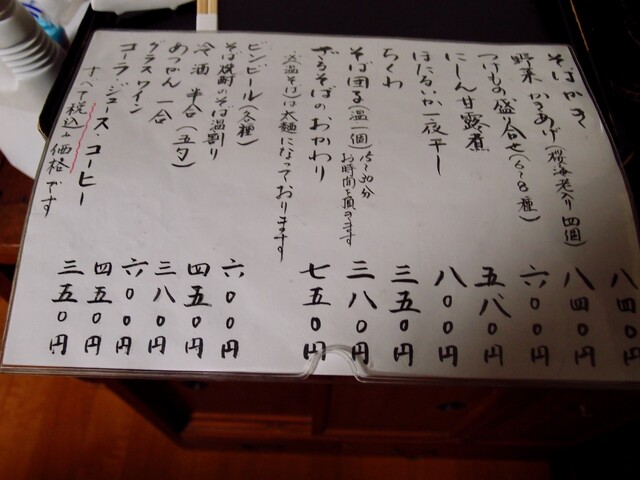 そばかき 八四〇円
野菜かきあげ(桜海老入り四個) 八四〇円
つけもの盛り合せ(6〜8種) 六〇〇円
にしん甘露煮 五八〇円
ほたるいか一夜干し 八〇〇円
ちくわ 三五〇円
そば団子(温一個) 三八〇円
15〜30分
お時間を頂きます
ざるそばのおかわり 七五〇円
温そば)は太麺になっております
ビンビール(各種) 六〇〇円
そば焼酎のそば湯割り 四五〇円
冷酒 半合(五勺) 三八〇円
あつかん 一合 六〇〇円
グラスワイン 四五〇円
コーラ・ジュース コーヒー 三五〇円
すべて税込み価格です